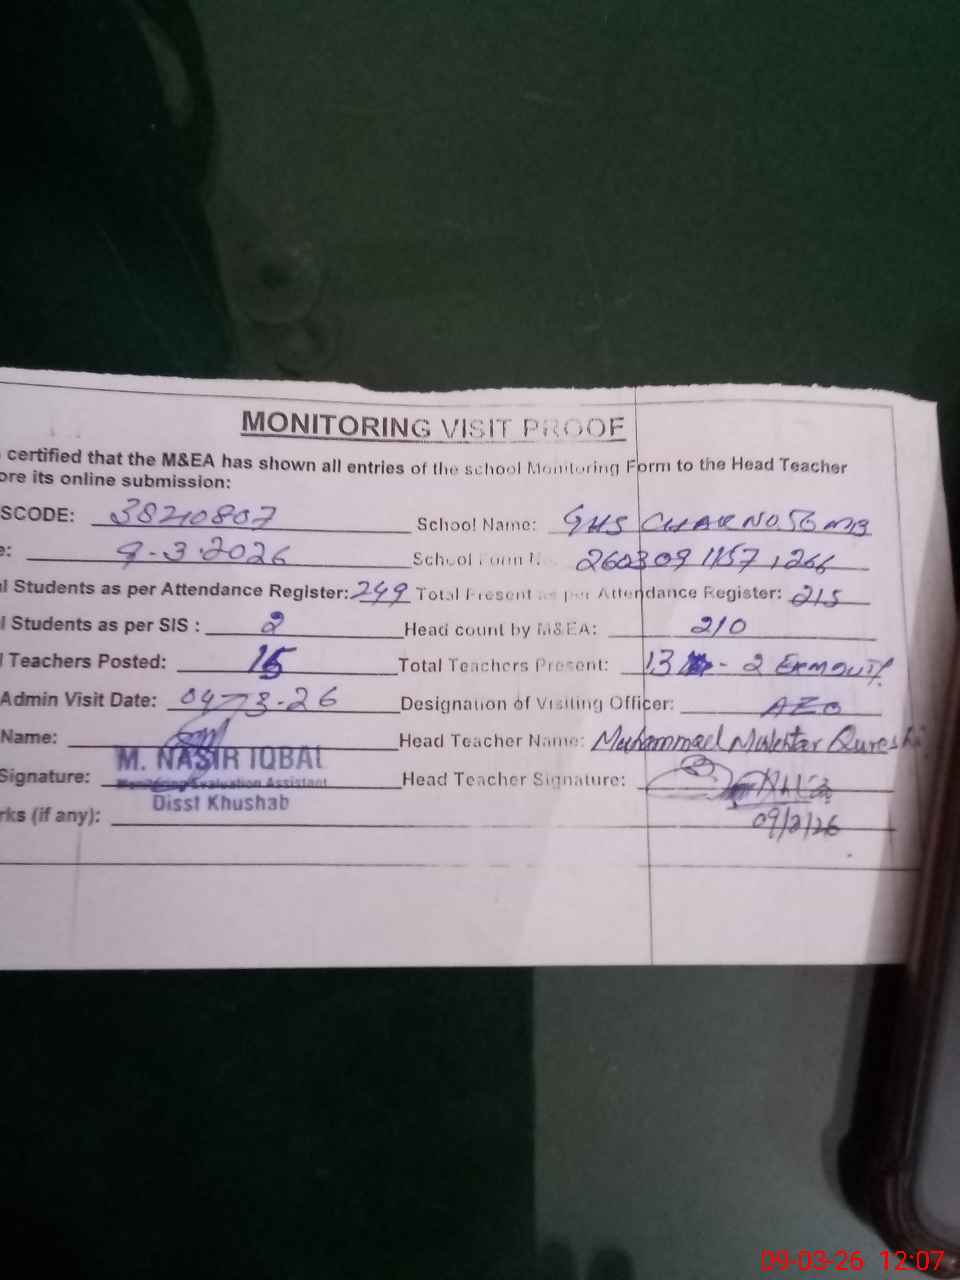 MONITORING VISIT PROOF
certified that the M&EA has shown all entries of the school Monitoring Form to the Head Teacher
ore its online submission:
SCODE: 38210807 School Name: GHS CHAK NO. 56 MB
e: 9-3-2026 School Form N. 260309 1157 1266
l Students as per Attendance Register: 249 Total Present as per Attendance Register: 215
l Students as per SIS : 2 Head count by M&EA: 210
l Teachers Posted: 15 Total Teachers Present: 13 - 2
Admin Visit Date: 04-3-26 Designation of Visiting Officer: AEO
Name: Head Teacher Name: Muhammad Mukhtar Qureshi
M. NASIR IQBAL
Signature: Monitoring Evaluation Assistant Head Teacher Signature:
Disst Khushab
rks (if any): 09/3/26
09-03-26 12:07